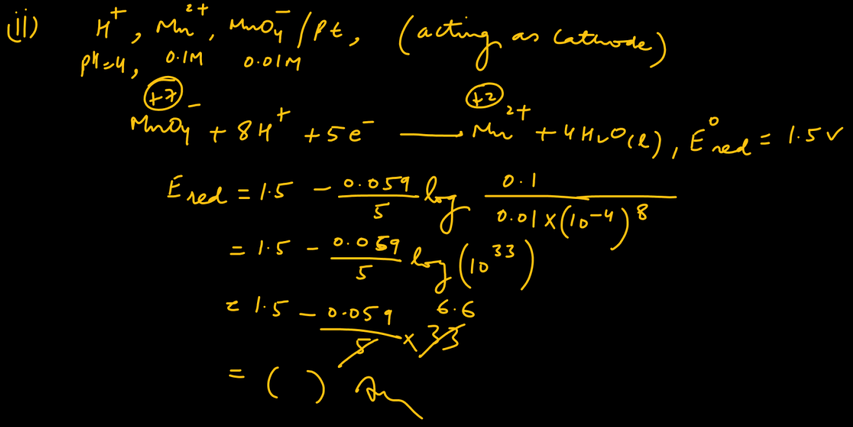 (ii) H⁺, Mn²⁺, MnO₄⁻/Pt, (acting as cathode)
pH=4, 0.1M 0.01M
+7 +2
MnO₄⁻ + 8H⁺ + 5e⁻ → Mn²⁺ + 4H₂O(l), E°red = 1.5 V
Ered = 1.5 − 0.059/5 log 0.1/(0.01×(10⁻⁴)⁸)
= 1.5 − 0.059/5 log(10³³)
= 1.5 − 0.059/5 × 33 6.6
= ( ) Ans